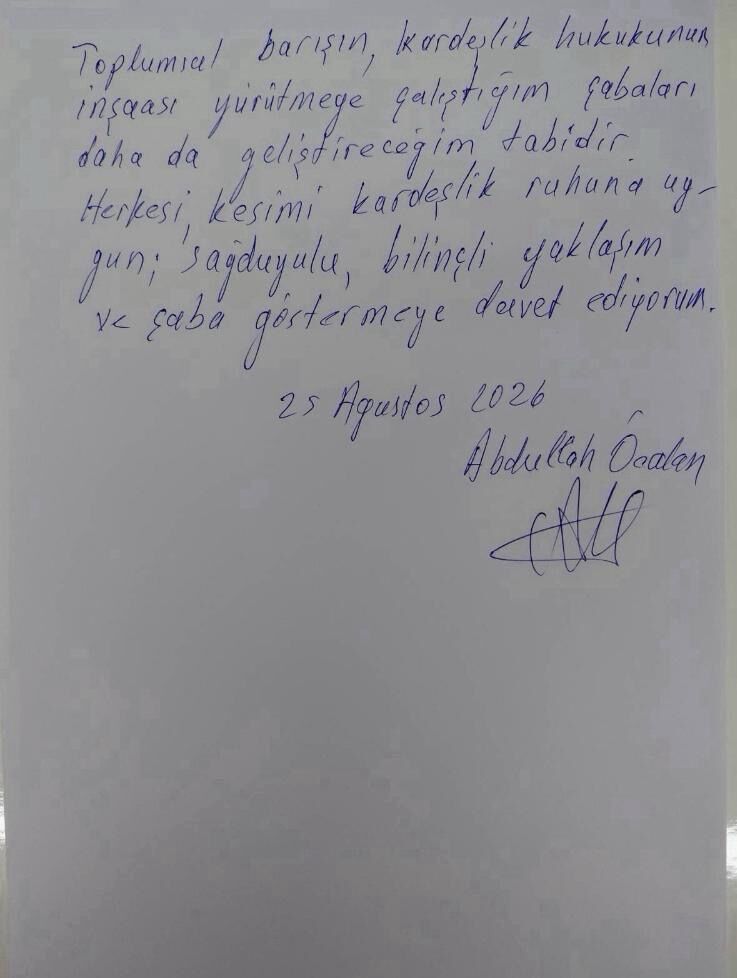 Toplumsal barışın, kardeşlik hukukunun
inşaası yürütmeye çalıştığım çabaları
daha da geliştireceğim tabidir
Herkesi, kesimi kardeşlik ruhuna uy-
gun; sağduyulu, bilinçli yaklaşım
ve çaba göstermeye davet ediyorum.
25 Agustos 2026
Abdullah Öcalan